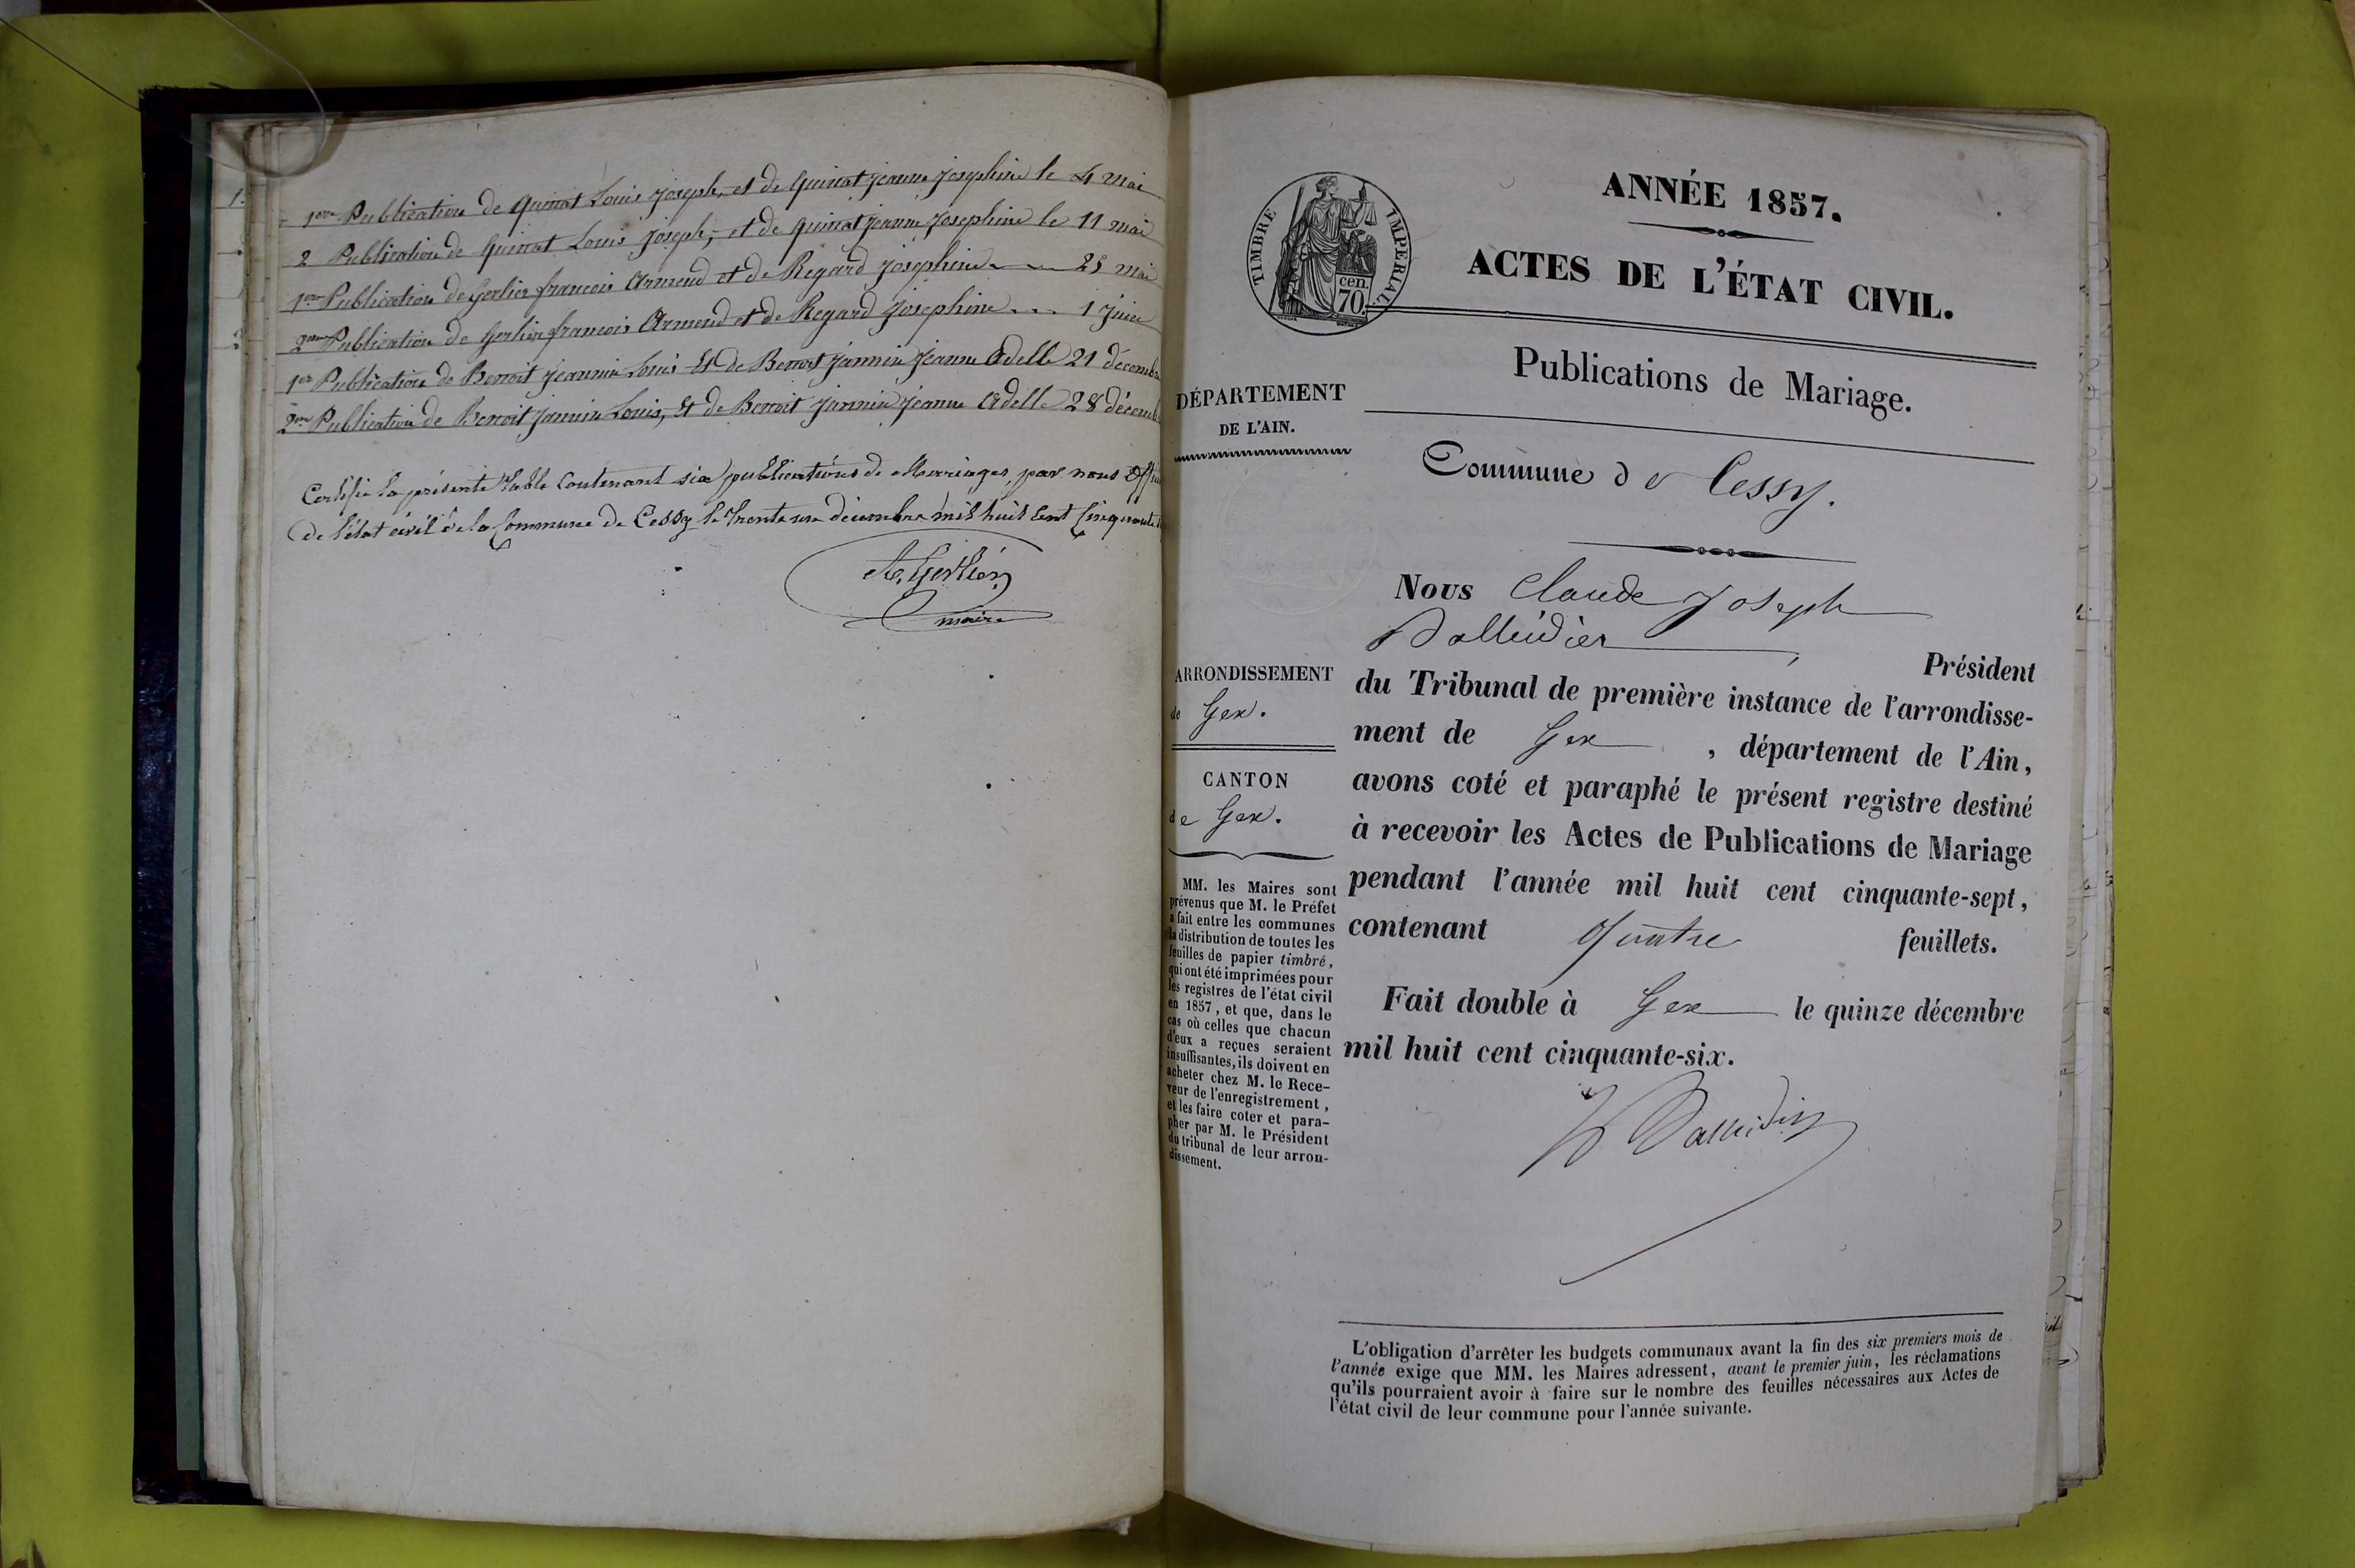 1ere Publication de Quinat Louis Joseph, et de Quinat Jeanne Josephine le 4 mai
2 Publication de Quinat Louis Joseph, et de Quinat Jeanne Josephine le 11 mai
1ere Publication de Gerlier francois Armend et de Regard Josephine 25 mai
2me Publication de Gerlier francois Armend et de Regard Josephine 1 Juin
1er Publication de Benoit Jeannin Louis Et de Benoit Jannin Jeanne Adelle 21 décemb
2me Publication de Benoit Jannin Louis, Et de Benoit Jannin Jeanne Adelle 28 décemb
Certifié la présente Table Contenant six publications de Mariages, par nous
de l'état civil de la Commune de Cessy le Trente un décembre mil huit Cent Cinquante
Gerlier
maire
ANNÉE 1857.
TIMBRE IMPÉRIAL.
cen.
70.
ACTES DE L'ÉTAT CIVIL.
Publications de Mariage.
DÉPARTEMENT
DE L'AIN.
Commune de Cessy.
Nous Claude Joseph
Dalleidier
Président
ARRONDISSEMENT
de Gex.
du Tribunal de première instance de l'arrondisse-
ment de Gex, département de l'Ain,
CANTON
de Gex.
avons coté et paraphé le présent registre destiné
à recevoir les Actes de Publications de Mariage
pendant l'année mil huit cent cinquante-sept,
contenant Quatre feuillets.
Fait double à Gex le quinze décembre
mil huit cent cinquante-six.
MM. les Maires sont
prévenus que M. le Préfet
a fait entre les communes
la distribution de toutes les
feuilles de papier timbré,
qui ont été imprimées pour
les registres de l'état civil
en 1857, et que, dans le
cas où celles que chacun
d'eux a reçues seraient
insuffisantes, ils doivent en
acheter chez M. le Rece-
veur de l'enregistrement,
et les faire coter et para-
pher par M. le Président
du tribunal de leur arron-
dissement.
L'obligation d'arrêter les budgets communaux avant la fin des six premiers mois de
l'année exige que MM. les Maires adressent, avant le premier juin, les réclamations
qu'ils pourraient avoir à faire sur le nombre des feuilles nécessaires aux Actes de
l'état civil de leur commune pour l'année suivante.